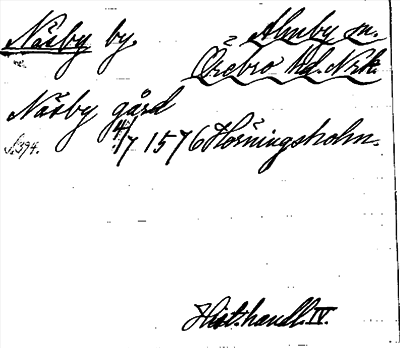 Näsby by.
Almby sn.
Örebro hd. Nrk.
Näsby gård
s. 394.
4/7 1576 Hörningsholm.
Hist. handl. IV.